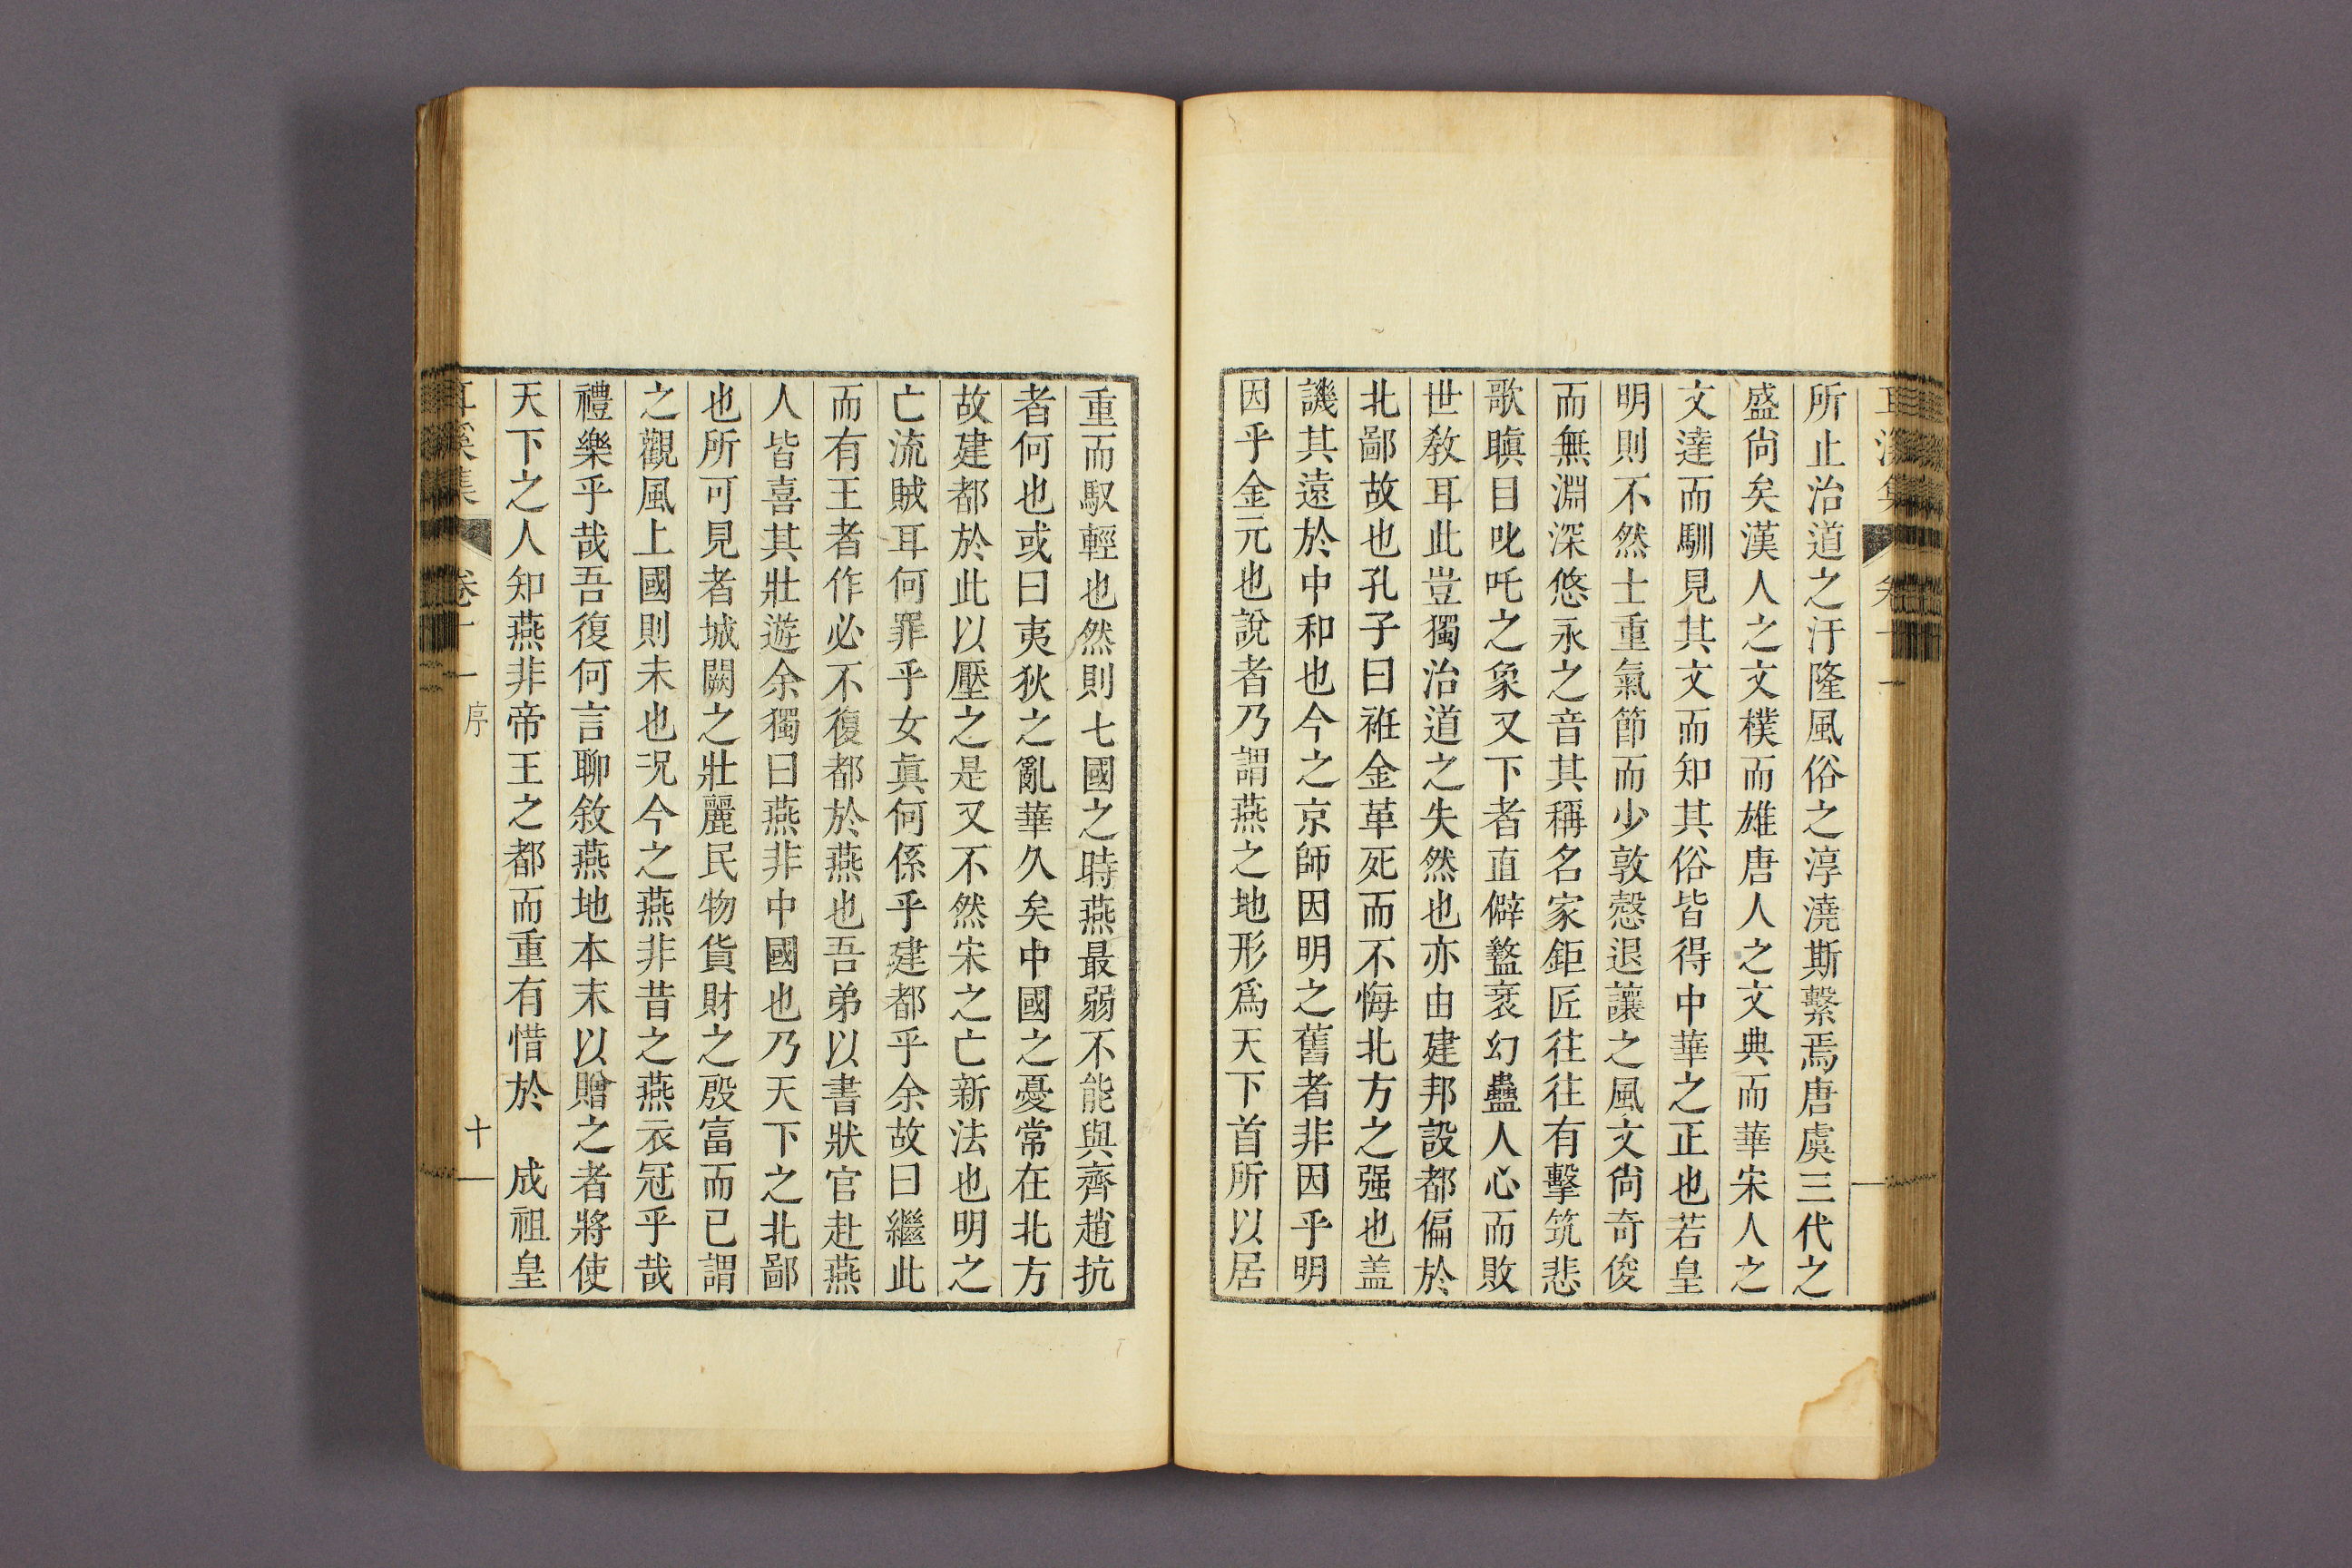 所止治道之汙隆風俗之淳澆斯繫焉唐虞三代之
盛尙矣漢人之文樸而雄唐人之文典而華宋人之
文達而馴見其文而知其俗皆得中華之正也若皇
明則不然士重氣節而少敦慤退讓之風文尙奇俊
而無淵深悠永之音其稱名家鉅匠往往有擊筑悲
歌瞋目叱吒之象又下者直僻盭衺幻蠱人心而敗
世敎耳此豈獨治道之失然也亦由建邦設都偏於
北鄙故也孔子曰袵金革死而不悔北方之强也盖
譏其遠於中和也今之京師因明之舊者非因乎明
因乎金元也說者乃謂燕之地形爲天下首所以居
重而馭輕也然則七國之時燕最弱不能與齊趙抗
者何也或曰夷狄之亂華久矣中國之憂常在北方
故建都於此以壓之是又不然宋之亡新法也明之
亡流賊耳何罪乎女眞何係乎建都乎余故曰繼此
而有王者作必不復都於燕也吾弟以書狀官赴燕
人皆喜其壯遊余獨曰燕非中國也乃天下之北鄙
也所可見者城闕之壯麗民物貨財之殷富而已謂
之觀風上國則未也况今之燕非昔之燕衣冠乎哉
禮樂乎哉吾復何言聊敘燕地本末以贈之者將使
天下之人知燕非帝王之都而重有惜於　成祖皇
耳溪集　卷十一　序　十一